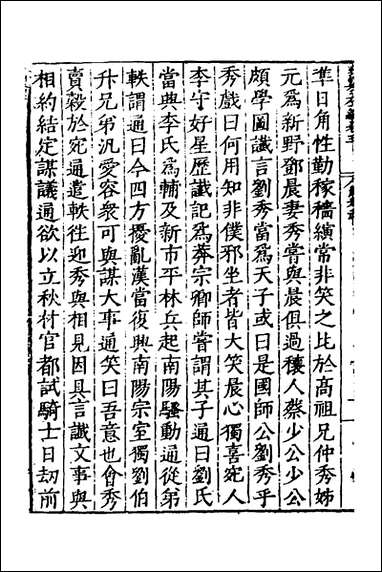 準日角性勤稼穡縯常非笑之比於高祖兄仲秀姊
元為新野鄧晨妻秀嘗與晨俱過穰人蔡少公少公
頗學圖讖言劉秀當為天子或曰是國師公劉秀乎
秀戲曰何用知非僕邪坐者皆大笑晨心獨喜宛人
李守好星歷讖記為莽宗卿師嘗謂其子通曰劉氏
當興李氏為輔及新市平林兵起南陽騷動通從弟
軼謂通曰今四方擾亂漢當復興南陽宗室獨劉伯
升兄弟汎愛容衆可與謀大事通笑曰吾意也會秀
賣穀於宛通遣軼往迎秀與相見因具言讖文事與
相約結定謀議通欲以立秋材官都試騎士日劫前